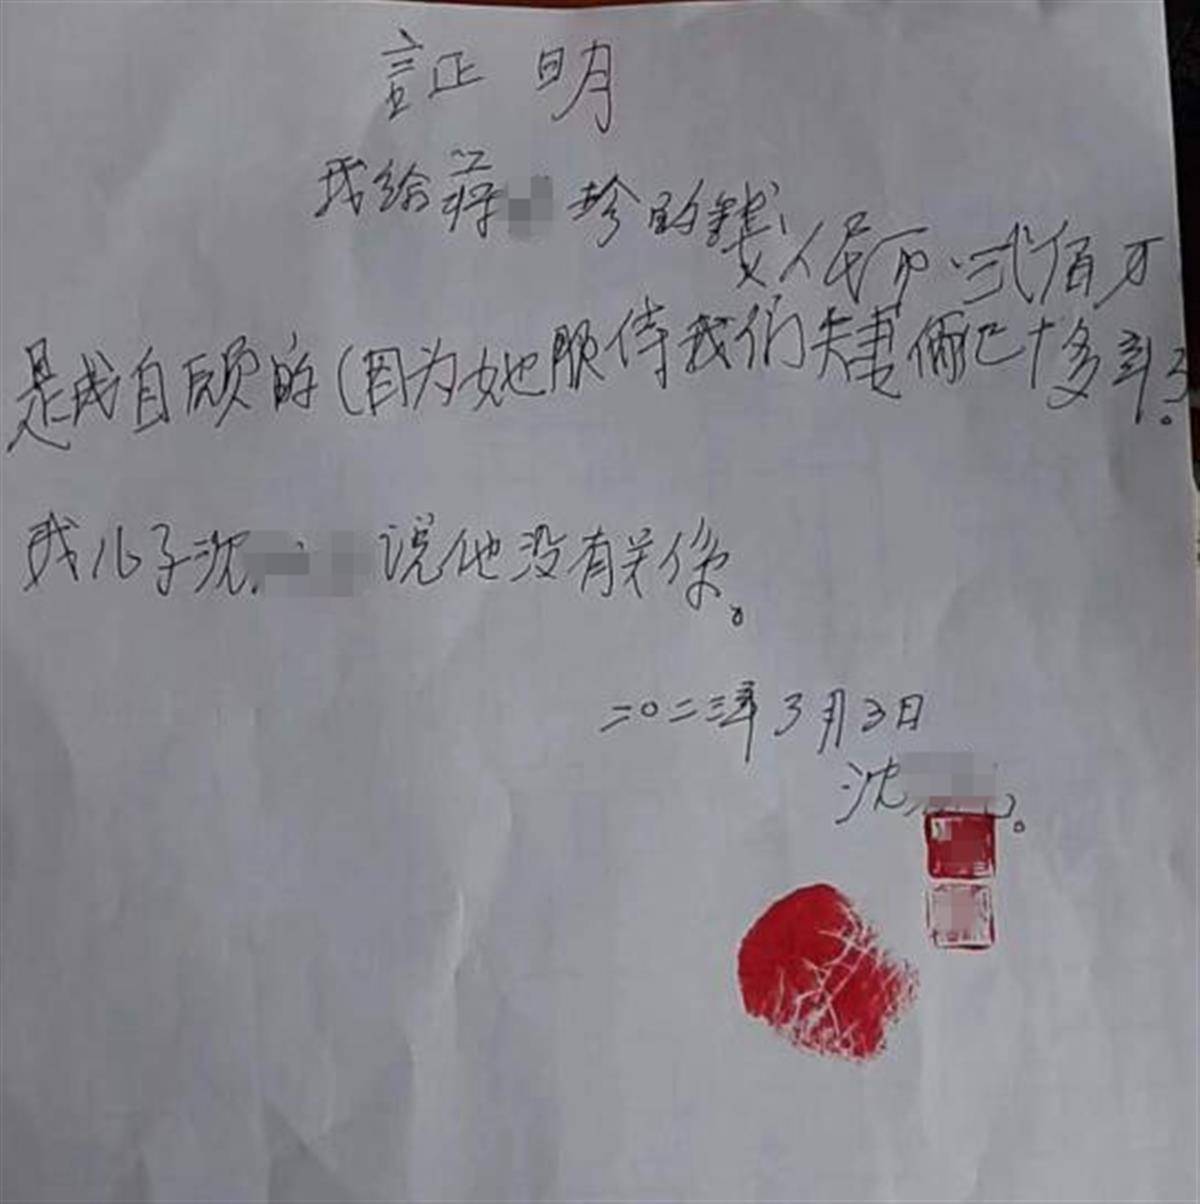 証明
我给蒋 珍的钱
人民币.弍佰万
是我自愿的(因为她服侍我们夫妻俩已十多年了。
我儿子沈 说他没有关係。
二〇二三年3月3日
沈